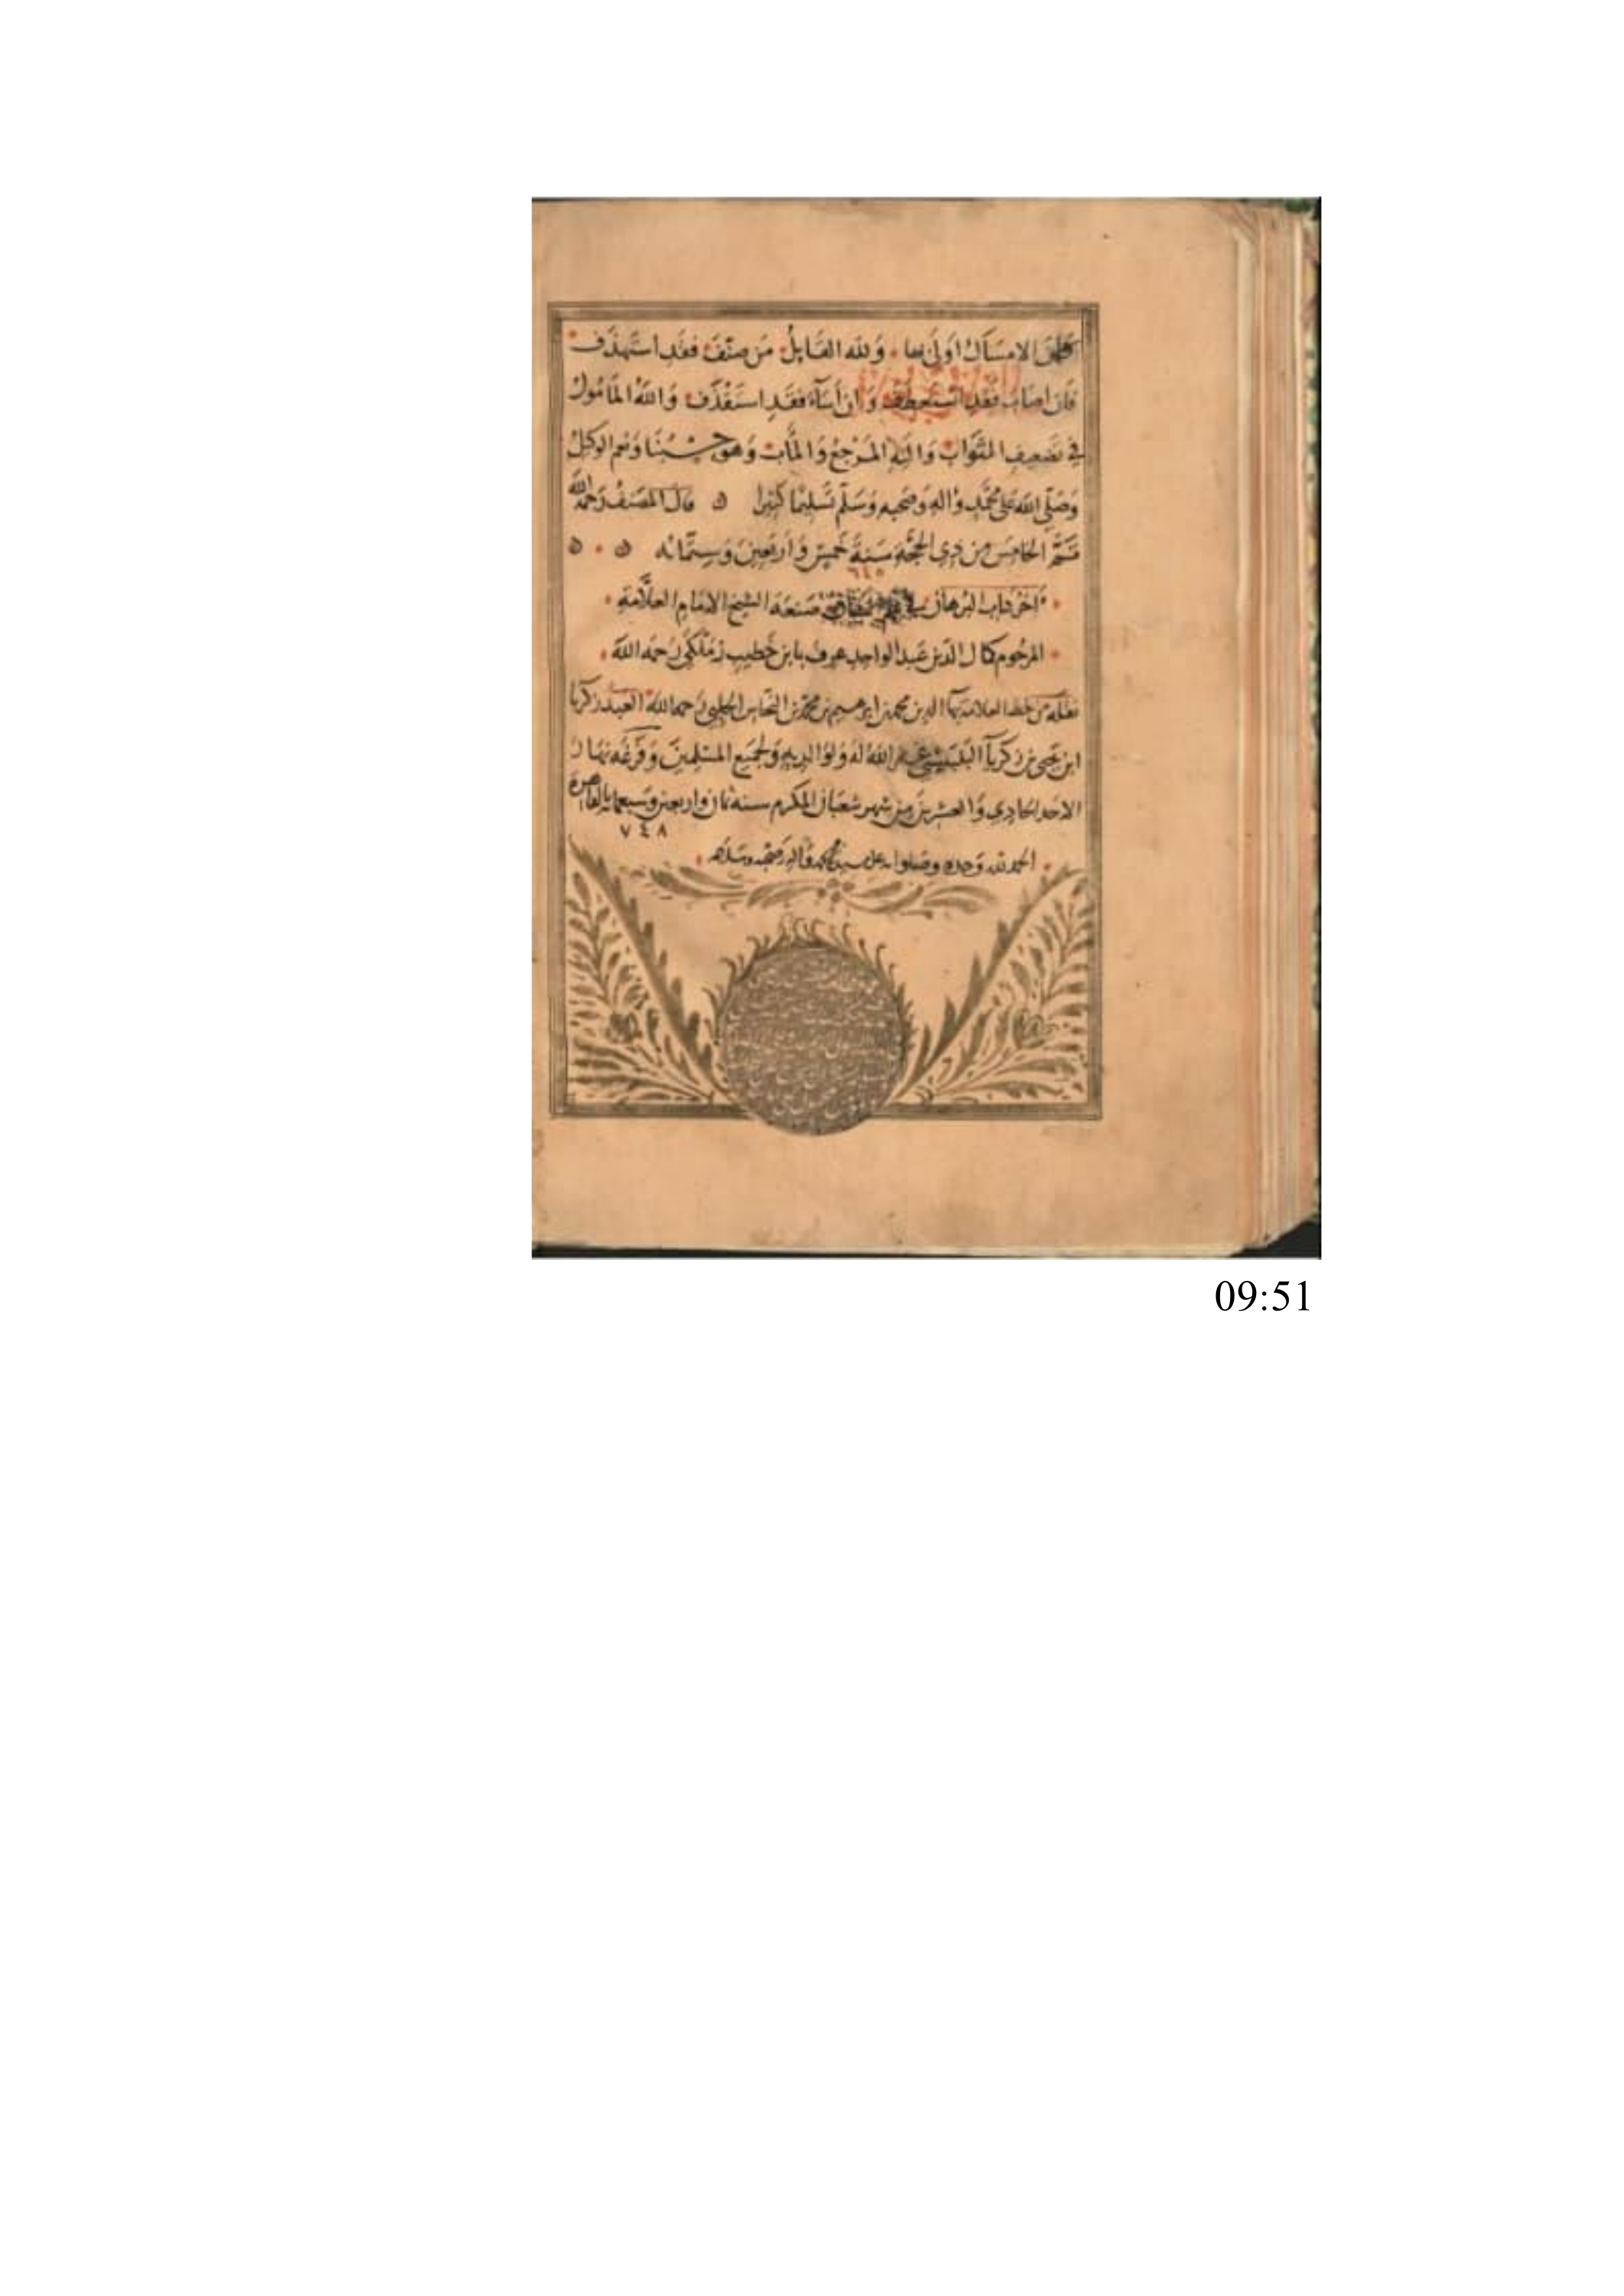 الامساك اولى بها ۰ ولله القايل من صنف فقد استهدف
فان اصاب فقد استعطف وان اساء فقد استقذف والله المامول
في تضعيف الثواب واليه المرجع والمآب وهو حسبنا ونعم الوكيل
وصلى الله على محمد واله وصحبه وسلم تسليما كثيرا ۵ قال المصنف رحمه الله
تم الخامس من ذي الحجة سنة خمس واربعين وستمائه ۵ ۰ ۵
٦٤٥
اخر كتاب البرهان في صنعه الشيخ الامام العلامة
المرحوم كمال الدين عبد الواحد عرف بابن خطيب زملكى رحمه الله
نقله من خط العلامه بها الدين محمد بن ابرهيم بن محمد بن النحاس الحلبي رحمه الله العبد زكريا
ابن يحيى بن زكريا البلبيسي غفر الله له ولوالديه ولجميع المسلمين وفرغه نهار
الاحد الحادي والعشرين من شهر شعبان المكرم سنه ثمان واربعين وسبعمايه بالقاهرة
٧٤٨
الحمد لله وحده وصلواته على سيدنا محمد واله وصحبه وسلامه
09:51